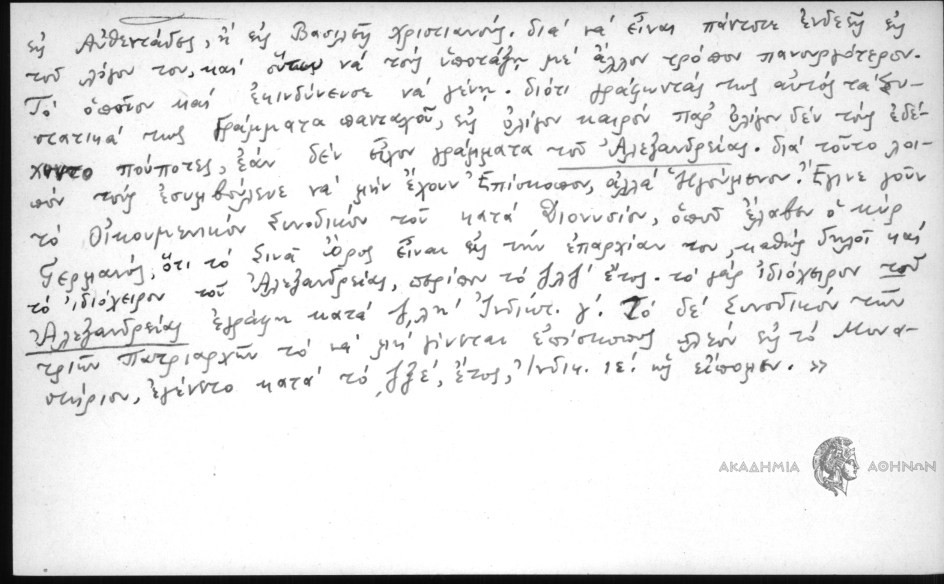 εἰς Αὐθεντάδες, ἢ εἰς Βασιλεῖς χριστιανούς. διὰ νὰ εἶναι πάντοτε ἐνδεεῖς εἰς
τοῦ λόγου του, καὶ οὕτως νὰ τοὺς ὑποτάξῃ μὲ ἄλλον τρόπον πανουργότερον.
Τὸ ὁποῖον καὶ ἐκινδύνευσε νὰ γένῃ. διότι γράφωντάς τως αὐτὸς τὰ Συ-
στατικά τως Γράμματα πανταχοῦ, εἰς ὀλίγον καιρὸν παρ' ὀλίγον δὲν τοὺς ἐδέ-
χοντο πούποτες, ἐὰν δὲν εἶχον γράμματα τοῦ Ἀλεξανδρείας. διὰ τοῦτο λοι-
πὸν τοὺς ἐσυμβούλευε νὰ μὴν ἔχουν Ἐπίσκοπον, ἀλλὰ Ἡγούμενον. Ἔγινε γοῦν
τὸ Οἰκουμενικὸν Συνοδικὸν τοῦ κατὰ Διονυσίου, ὁποῦ ἔλαβεν ὁ κὺρ
Γερμανός, ὅτι τὸ Σινᾶ Ὄρος εἶναι εἰς τὴν ἐπαρχίαν του, καθὼς δηλοῖ καὶ
τὸ ἰδιόχειρον τοῦ Ἀλεξανδρείας, περίπου τὸ ͵ζλζ' ἔτος. τὸ γὰρ ἰδιόχειρον τοῦ
Ἀλεξανδρείας ἐγράφη κατὰ ͵ζλη' Ἰνδικτ. γ'. Τὸ δὲ Συνοδικὸν τῶν
τριῶν Πατριαρχῶν τὸ νὰ μὴ γίνεται ἐπίσκοπος πλέον εἰς τὸ Μονα-
στήριον, ἐγένετο κατὰ τὸ ͵ζξε', ἔτος, Ἰνδικ. ιε'. ὡς εἴπομεν. »
ΑΚΑΔΗΜΙΑ ΑΘΗΝΩΝ